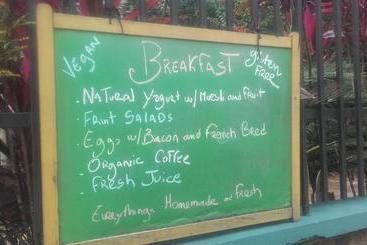 VEGAN
BREAKFAST
gluten
FREE
· NATURAL Yogurt w/ Muesli and fruit
· FRUIT SALADS
· Eggs w/ Bacon and French Bred
· ORGANIC Coffee
· FRESH Juice
Everythings Homemade and Fresh